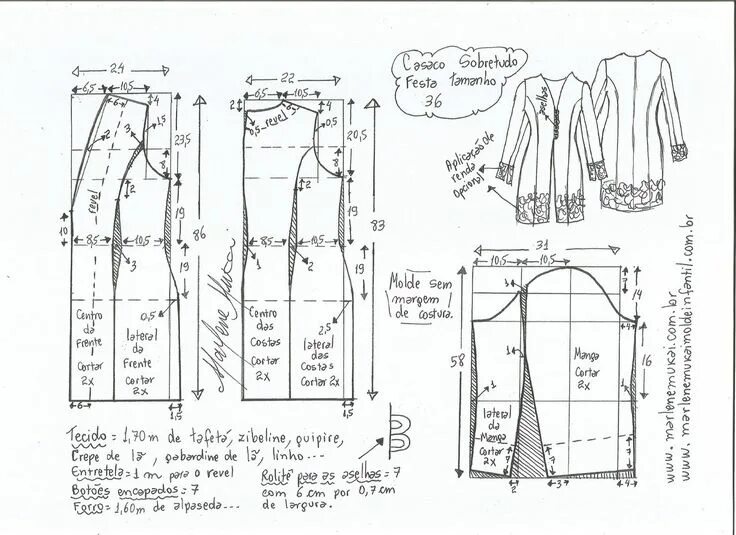 Casaco Sobretudo
Festa tamanho
36
24
6,5
10,5
6
4
1,5
2
3
23,5
8
2
revel
10
8,5
10,5
3
19
19
86
0,5
Centro
da
Frente
cortar
2x
lateral
da
Frente
Cortar
2x
6
1,5
Marlene Mukai
22
6,5
10,5
2
4
0,5
revel
0,5
20,5
8
2
8,5
10,5
1
3
19
19
83
2,5
Centro
das
Costas
Cortar
2x
lateral
das
Costas
Cortar
2x
1,5
aselhas
Aplicação de
renda
opcional
Molde sem
margem
de costura.
31
10,5
10,5
1
7
14
4
58
16
1
1
1
Manga
Cortar
2x
lateral
da
Manga
Cortar
2x
7
7
7
2
3
4
www.marlenemukai.com.br
www.marlenemukaimoldeinfantil.com.br
Tecido = 1,70m de tafetá, zibeline, guipire,
Crepe de lã, gabardine de lã, linho...
Entretela = 1m para o revel
Botões encapados = 7
Forro = 1,60m de alpaseda...
Rolitê para as aselhas = 7
com 6cm por 0,7cm
de largura.